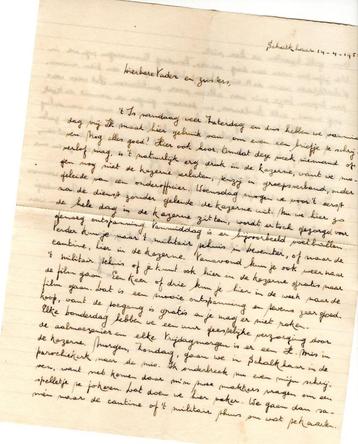 Schalkhaar 14-4-195
Dierbare Vader en zusters,
't Is vandaag weer Zaterdag en dus hebben we vanmid
dag vrij. Ik maak hier gebruik van om even een briefje te schrij
en. Nog alles goed? Hier ook hoor. Omdat deze week niemand op
verlof mag, is 't natuurlijk erg druk in de kazerne, want we mo
gen nog niet de kazerne verlaten, tenzij in groepsverband, onder
geleide van een onderofficier. Woensdag mogen we voor 't eerst
na de dienst zonder geleide de kazerne uit. Nu we hier zo
de hele dag in de kazerne zitten, wordt er toch gezorgd voor
genoeg ontspanning. Vanmiddag is er bijvoorbeeld voetballen.
Verder kun je naar 't militair tehuis in Deventer, of naar de
cantine, hier in de kazerne. Vanavond kun je ook weer naar
't militair tehuis of je kunt ook hier in de kazerne gratis naar
de film gaan. Een keer of drie kun je hier in de week naar de
film gaan. Dat is een mooie ontspanning en tevens zeer goed
koop, want de toegang is gratis en je mag er niet roken.
Elke donderdag hebben we een uur geestelijke verzorging door
de aalmoezenier en elke Vrijdagmorgen is er een H. Mis in
de kazerne. Morgen, Zondag, gaan we in Schalkhaar in de
parochiekerk naar de mis. Ik onderbreek nu even mijn schrij
ven, want net komt daar m'n maakkers vragen om een
spelletje te jokeren. Dat doen we hier vaker. We gaan dan sa-
men naar de cantine of 't militaire thuis om wat te kaarten